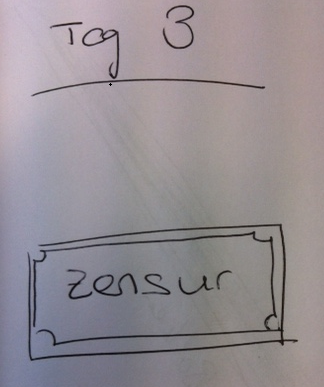 Tag 3
zensur